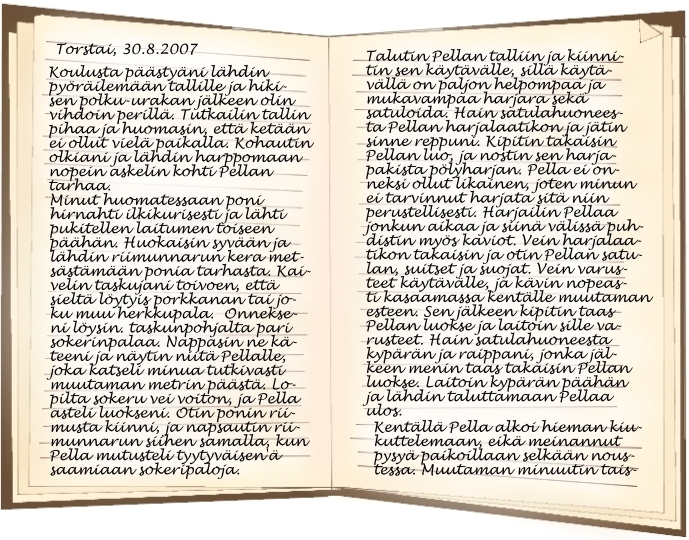 Torstai, 30.8.2007
Koulusta päästyäni lähdin
pyöräilemään tallille ja hiki-
sen polku-urakan jälkeen olin
vihdoin perillä. Tutkailin tallin
pihaa ja huomasin, että ketään
ei ollut vielä paikalla. Kohautin
olkiani ja lähdin harppomaan
nopein askelin kohti Pellan
tarhaa.
Minut huomatessaan poni
hirnahti ilkikurisesti ja lähti
pukitellen laitumen toiseen
päähän. Huokaisin syvään ja
lähdin riimunnarun kera met-
sästämään ponia tarhasta. Kai-
velin taskujani toivoen, että
sieltä löytyis porkkanan tai jo-
ku muu herkkupala. Onnekse-
ni löysin. taskunpohjalta pari
sokerinpalaa. Nappasin ne kä-
teeni ja näytin niitä Pellalle,
joka katseli minua tutkivasti
muutaman metrin päästä. Lo-
pilta sokeru vei voiton, ja Pella
asteli luokseni. Otin ponin rii-
musta kiinni, ja napsautin rii-
munnarun siihen samalla, kun
Pella mutusteli tyytyväisen'ä
saamiaan sokeripaloja.
Talutin Pellan talliin ja kiinni-
tin sen käytävälle, sillä käytä-
vällä on paljon helpompaa ja
mukavampaa harjara sekä
satuloida. Hain satulahuonees-
ta Pellan harjalaatikon ja jätin
sinne reppuni. Kipitin takaisin
Pellan luo, ja nostin sen harja-
pakista pölyharjan. Pella ei on-
neksi ollut likainen, joten minun
ei tarvinnut harjata sitä niin
perustellisesti. Harjailin Pellaa
jonkun aikaa ja siinä välissä puh-
distin myös kaviot. Vein harjalaa-
tikon takaisin ja otin Pellan satu-
lan, suitset ja suojat. Vein varus-
teet käytävälle, ja kävin nopeas-
ti kasaamassa kentälle muutaman
esteen. Sen jälkeen kipitin taas
Pellan luokse ja laitoin sille va-
rusteet. Hain satulahuoneesta
kypärän ja raippani, jonka jäl-
keen menin taas takaisin Pellan
luokse. Laitoin kypärän päähän
ja lähdin taluttamaan Pellaa
ulos.
Kentällä Pella alkoi hieman kiu-
kuttelemaan, eikä meinannut
pysyä paikoillaan selkään nous-
tessa. Muutaman minuutin tais-